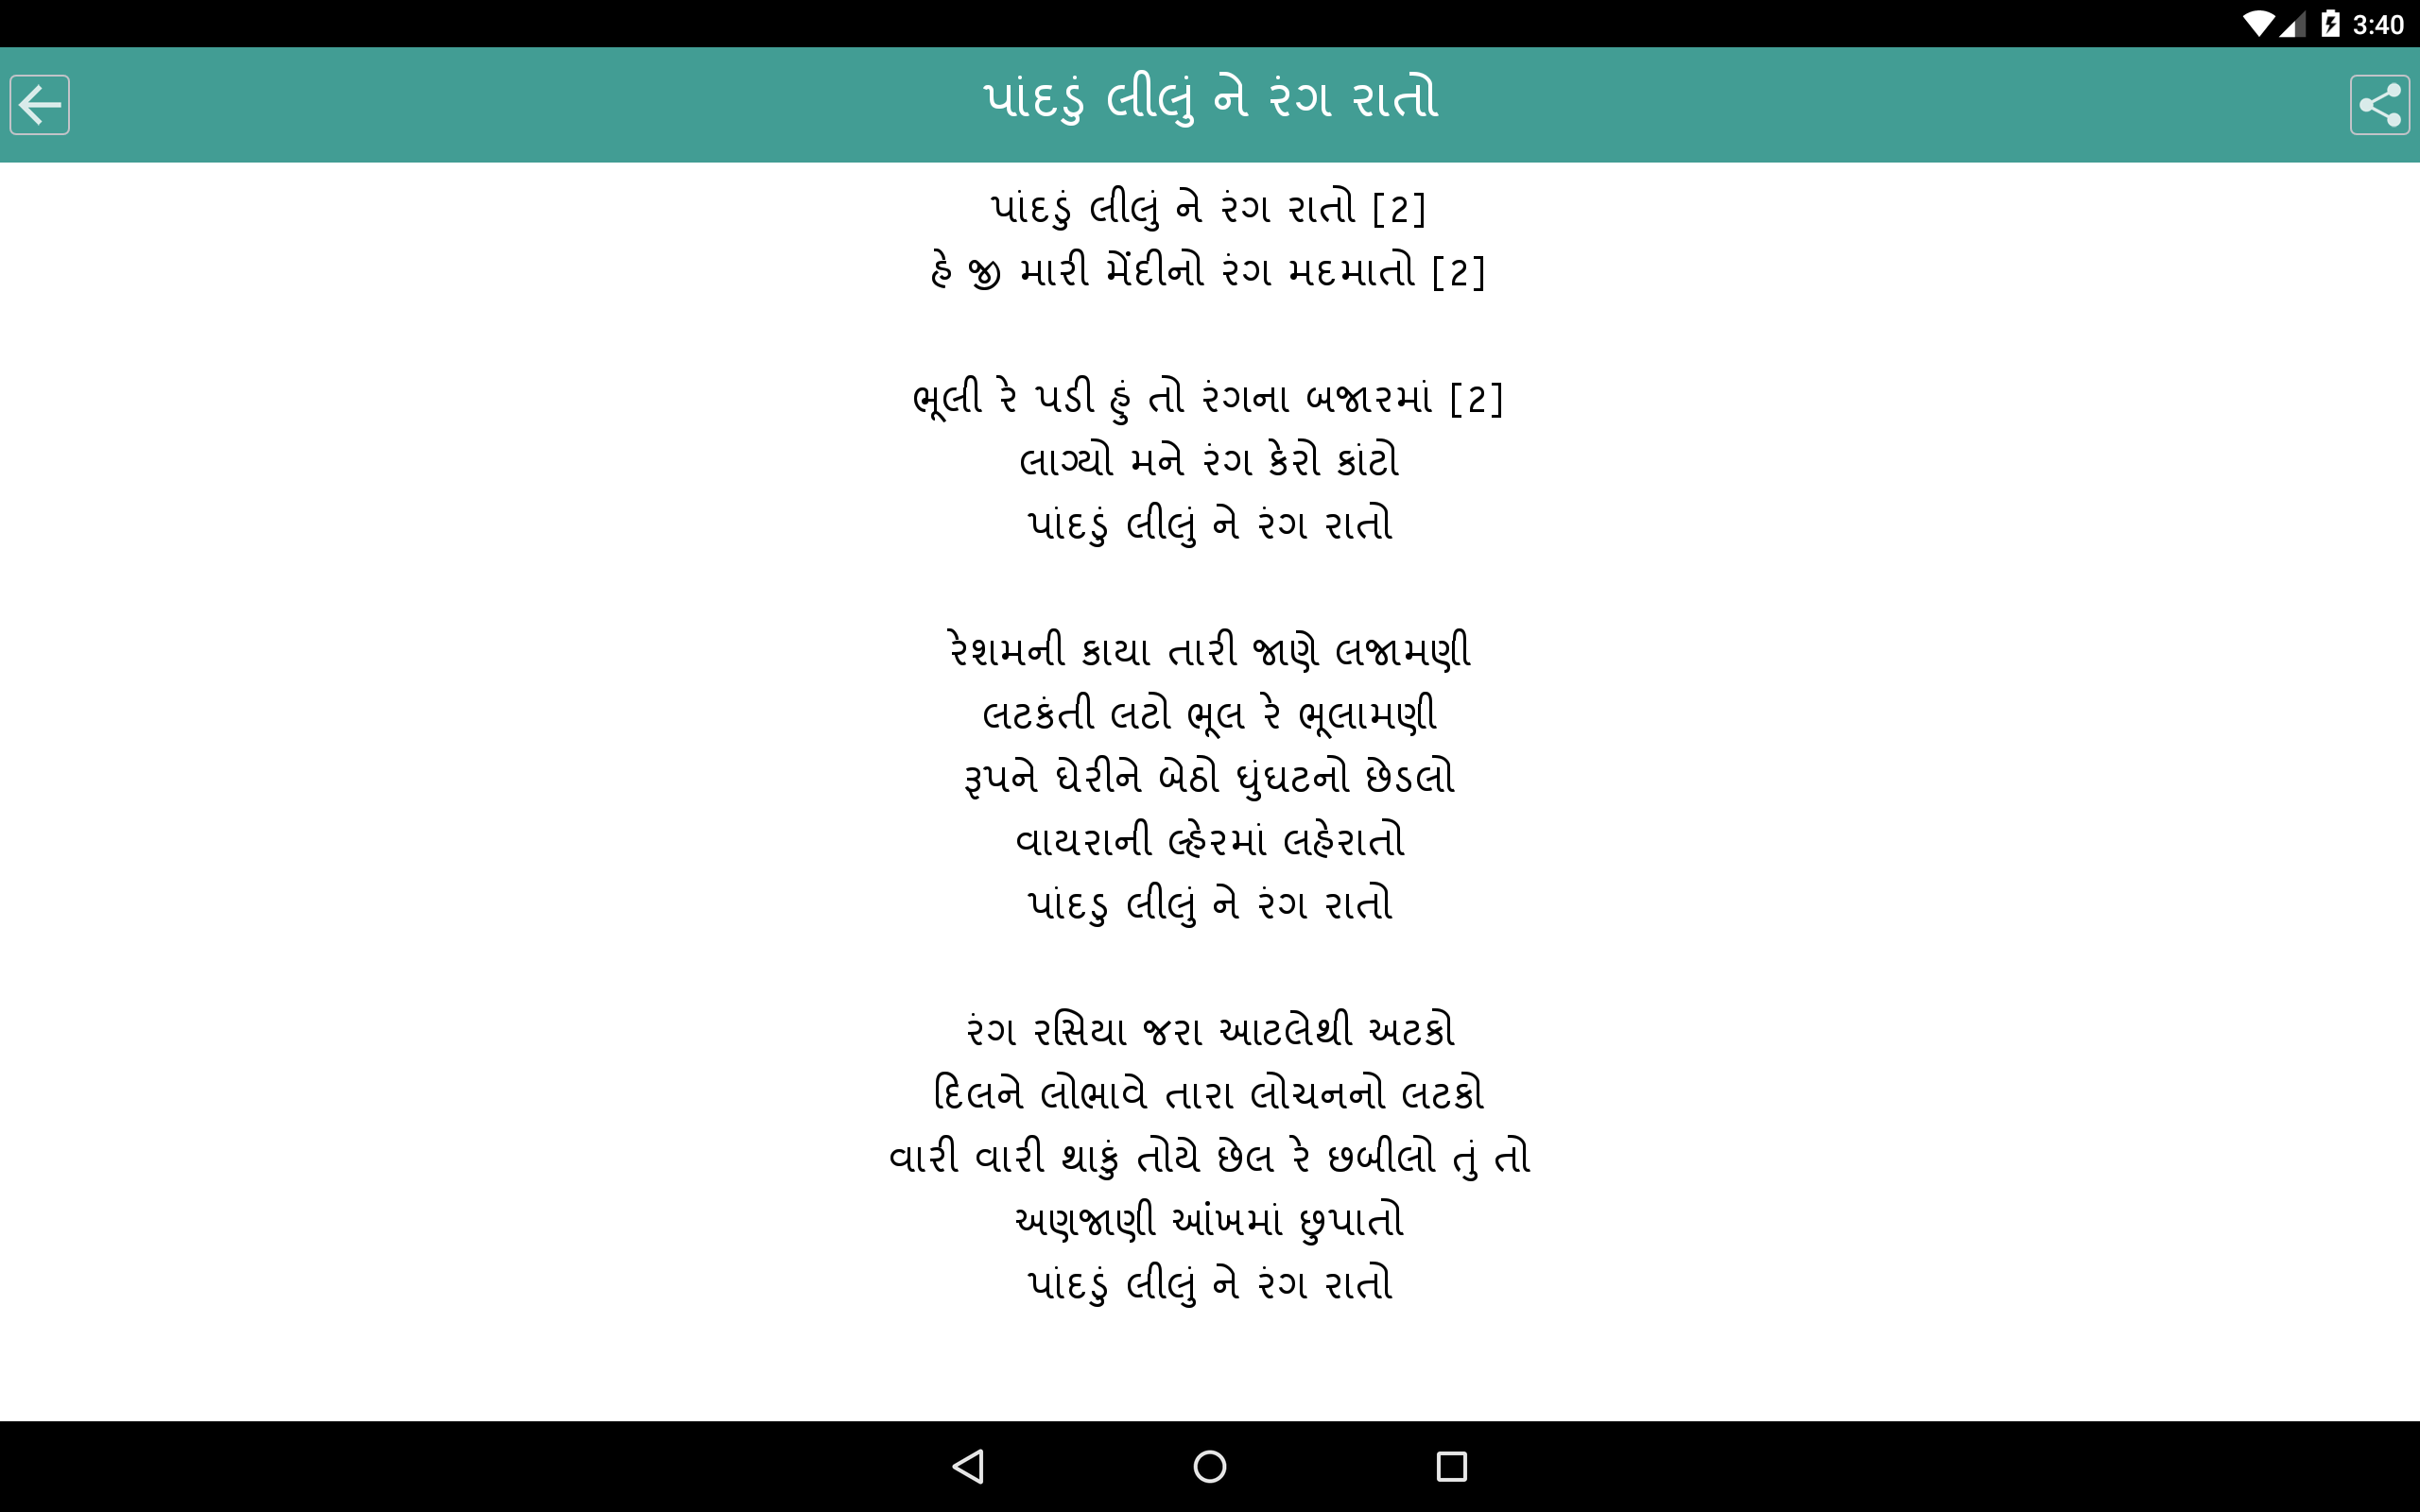 3:40
પાંદડું લીલું ને રંગ રાતો
પાંદડું લીલું ને રંગ રાતો [2]
હે જી મારી મેંદીનો રંગ મદમાતો [2]
ભૂલી રે પડી હું તો રંગના બજારમાં [2]
લાગ્યો મને રંગ કેરો કાંટો
પાંદડું લીલું ને રંગ રાતો
રેશમની કાયા તારી જાણે લજામણી
લટકંતી લટો ભૂલ રે ભૂલામણી
રૂપને ઘેરીને બેઠો ઘુંઘટનો છેડલો
વાયરાની લ્હેરમાં લહેરાતો
પાંદડુ લીલું ને રંગ રાતો
રંગ રસિયા જરા આટલેથી અટકો
દિલને લોભાવે તારા લોચનનો લટકો
વારી વારી થાકું તોયે છેલ રે છબીલો તું તો
અણજાણી આંખમાં છુપાતો
પાંદડું લીલું ને રંગ રાતો